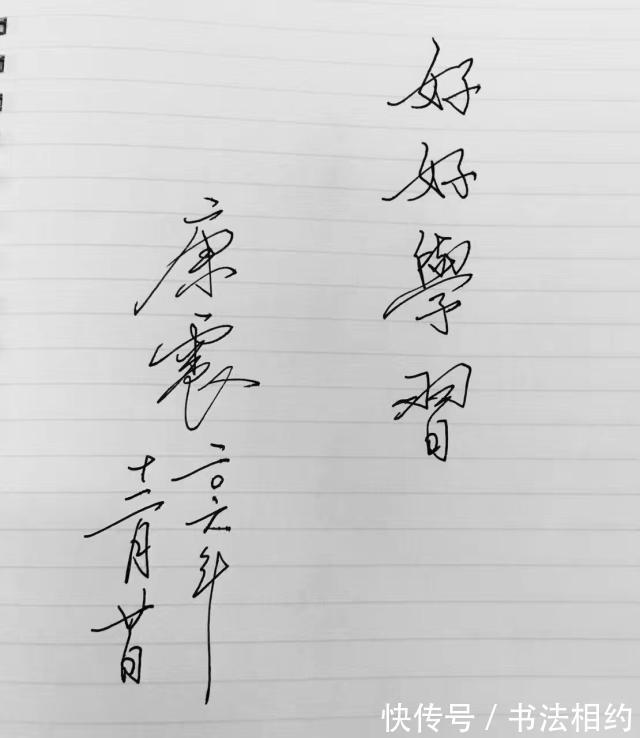 好好學習
康震
二〇一六年
十二月廿日
快传号 / 书法相约